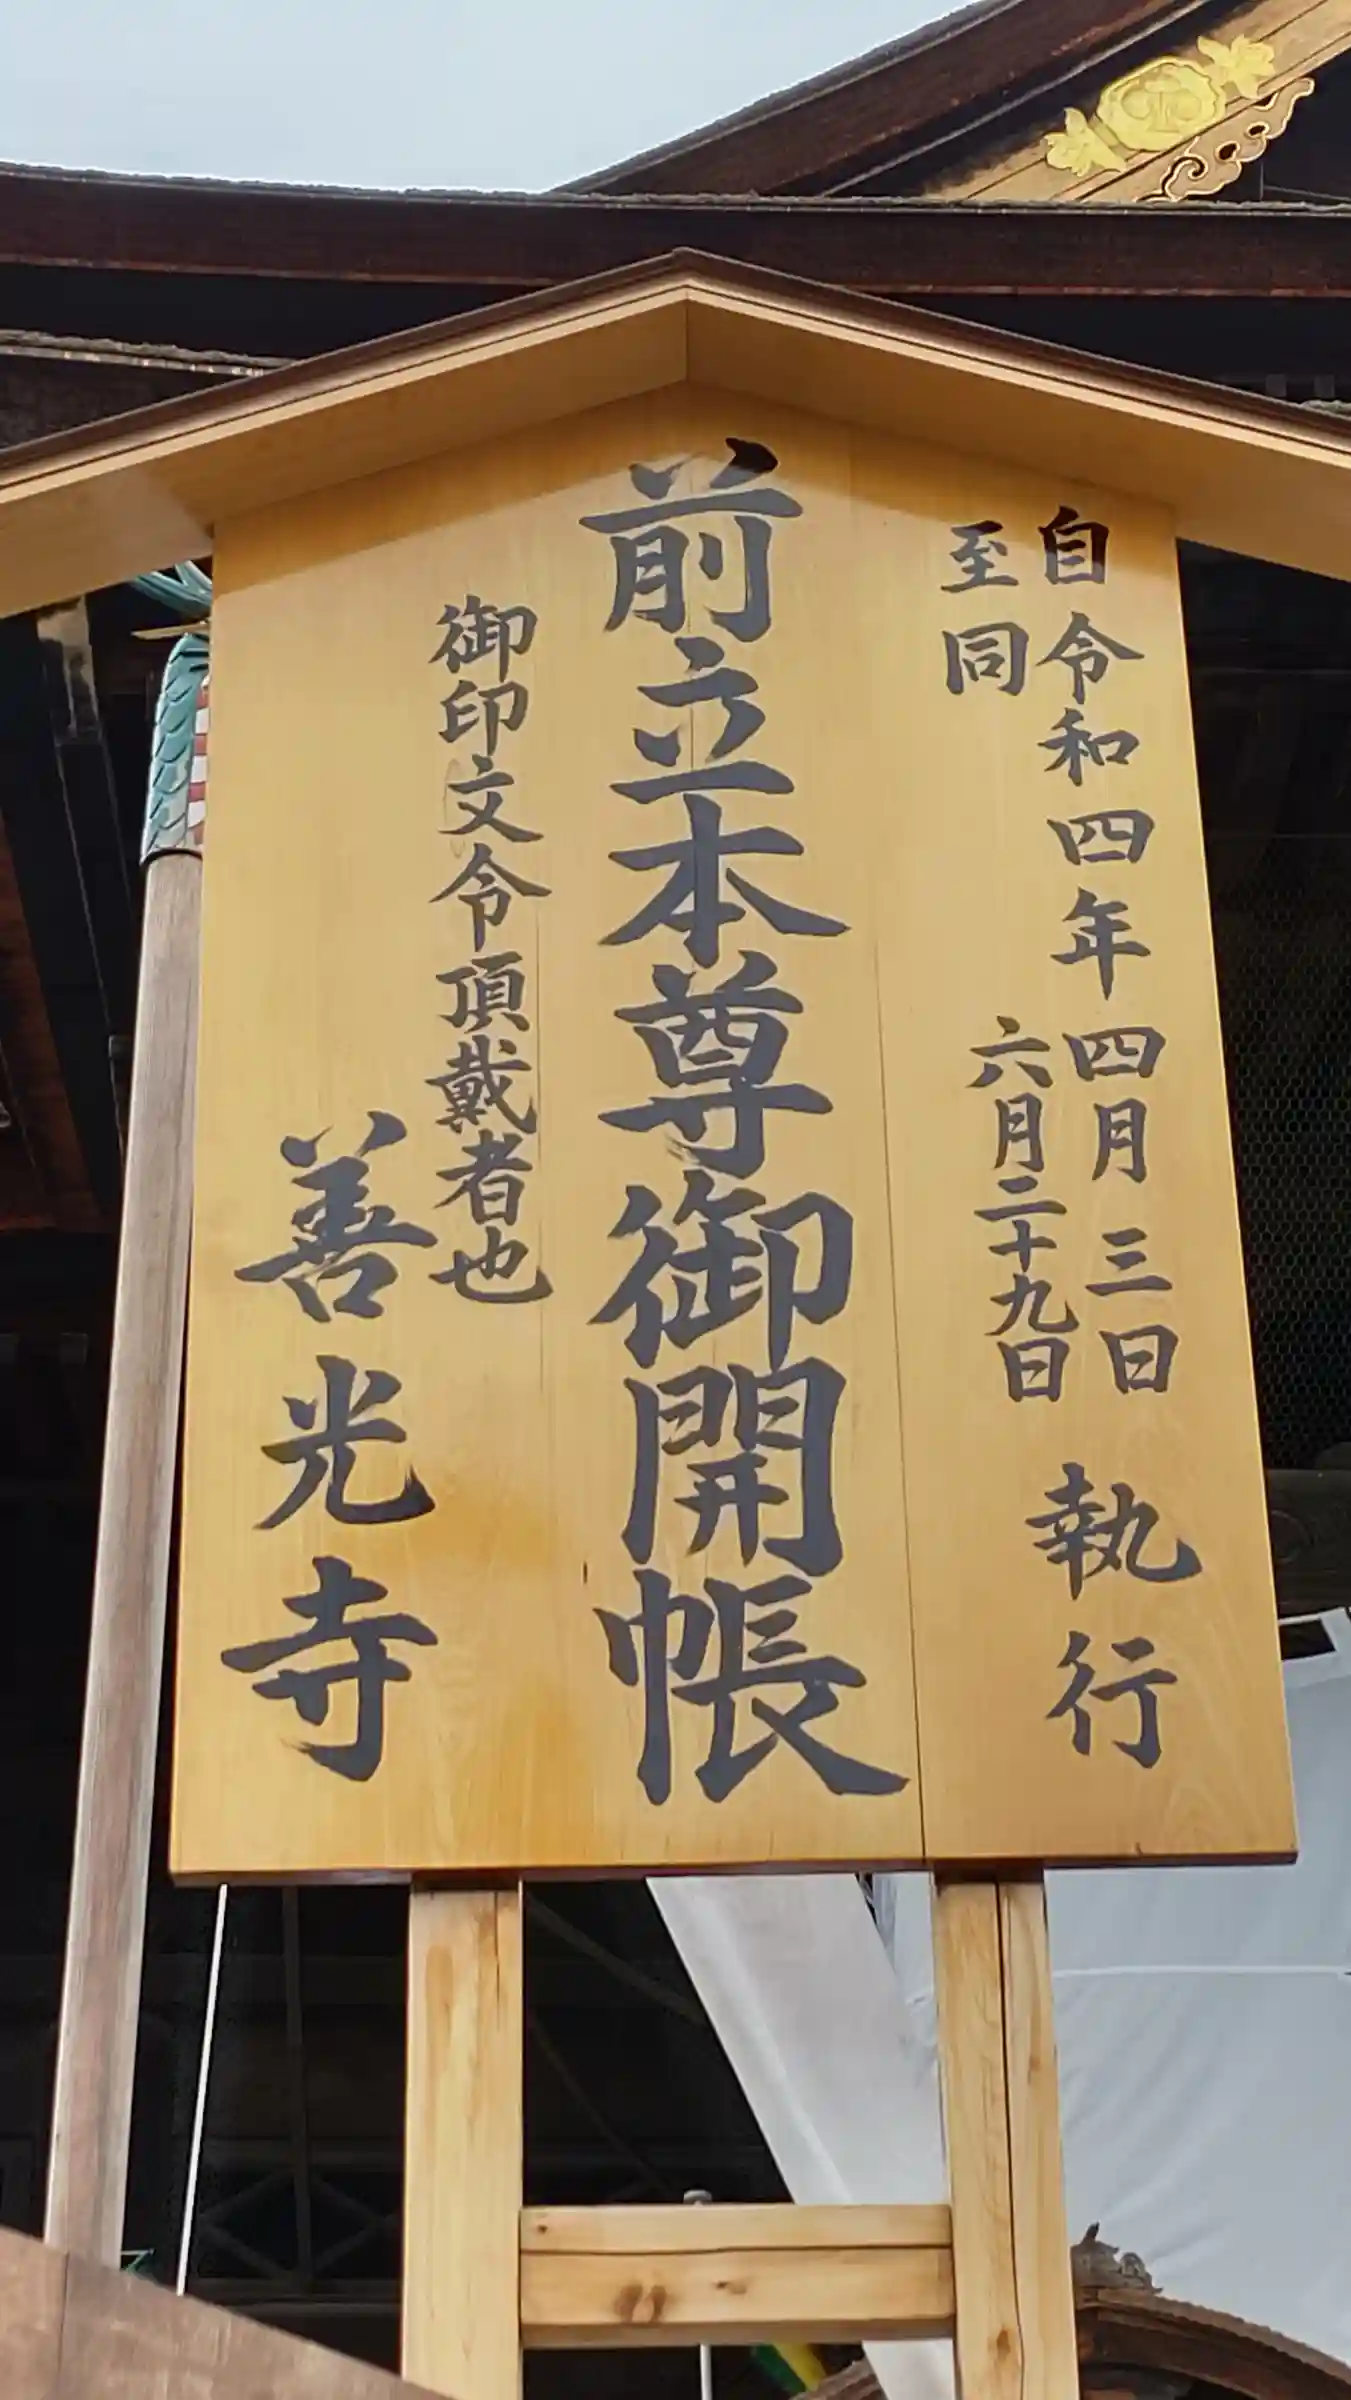 自令和四年四月三日
至同六月二十九日
執行
前立本尊御開帳
御印文令頂戴者也
善光寺